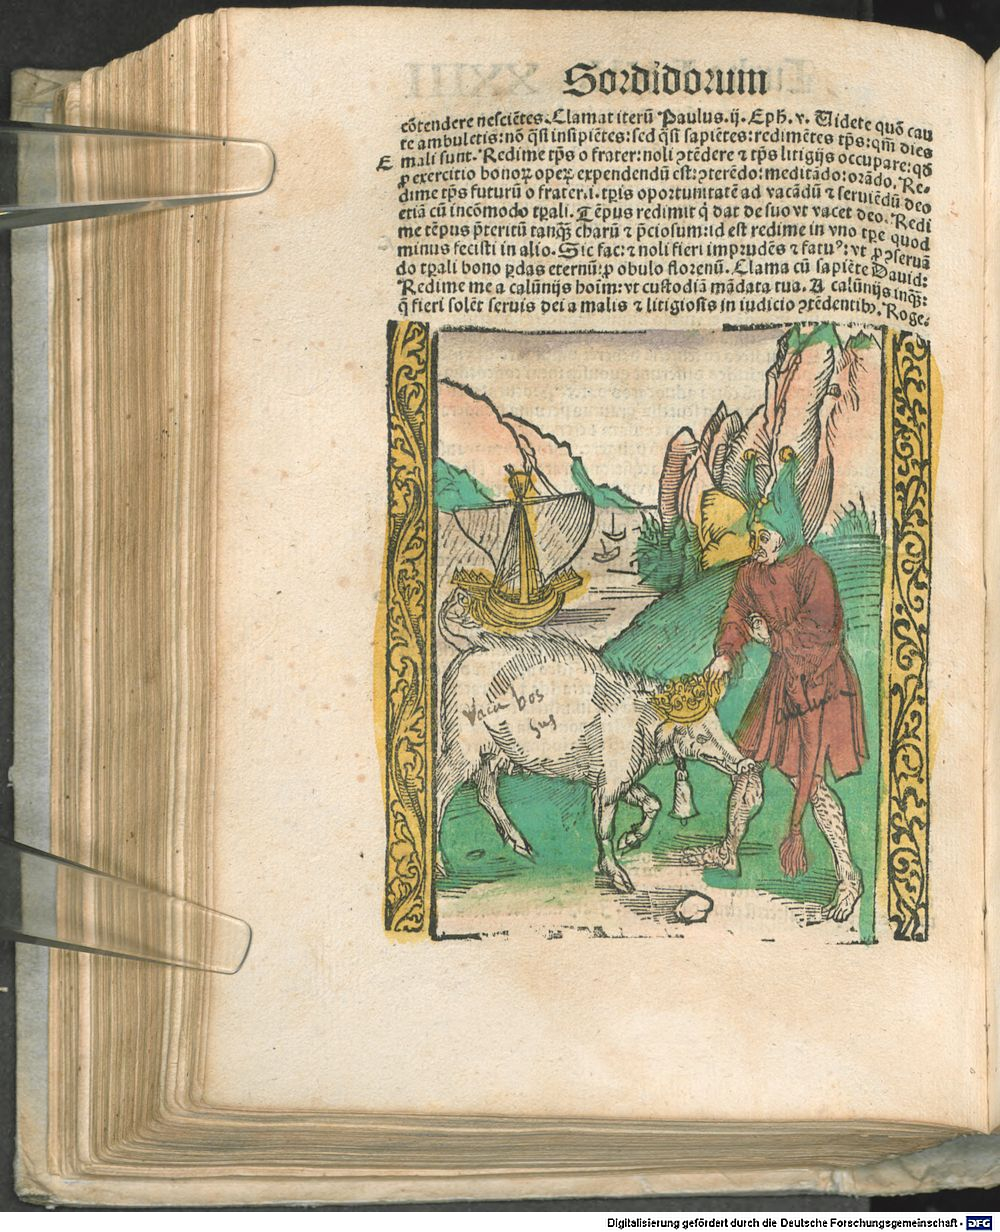 Sordidorum
cōtendere nesciētes. Clamat iterū Paulus .ij. Eph. v. Uidete quō cau
te ambuletis: nō qͣsi insipiētes: sed qͣsi sapiētes: redimētes tp̄s: qm̄ dies
E mali sunt. Redime tp̄s o frater: noli ꝯtēdere ⁊ tp̄s litigijs occupare: qđ
ꝓ exercitio bonoꝝ operꝫ expendendū est: ꝯterēdo: meditādo: orādo. Re-
dime tp̄s futurū o frater .i. tꝑis oportunitatē ad vacādū ⁊ seruiēdū deo
etiā cū incōmodo tꝑali. Tēpus redimit q̇ dat de suo vt vacet deo. Redi
me tēpus p̄teritū tanqͣꝫ charū ⁊ p̄ciosum: id est redime in vno tꝑe quod
minus fecisti in alio. Sic fac: ⁊ noli fieri imprudēs ⁊ fatuꝰ: vt ꝓ ꝯseruā
do tꝑali bono ꝑdas eternū: ꝓ obulo florenū. Clama cū sapiēte Dauid:
Redime me a calūnijs hoīm: vt custodiā mādata tua. A calūnijs inqͣꝫ:
q̄ fieri solēt seruis dei a malis ⁊ litigiosis in iudicio ꝯtēdentibꝫ. Roge:
bos
sus
Digitalisierung gefördert durch die Deutsche Forschungsgemeinschaft - DFG